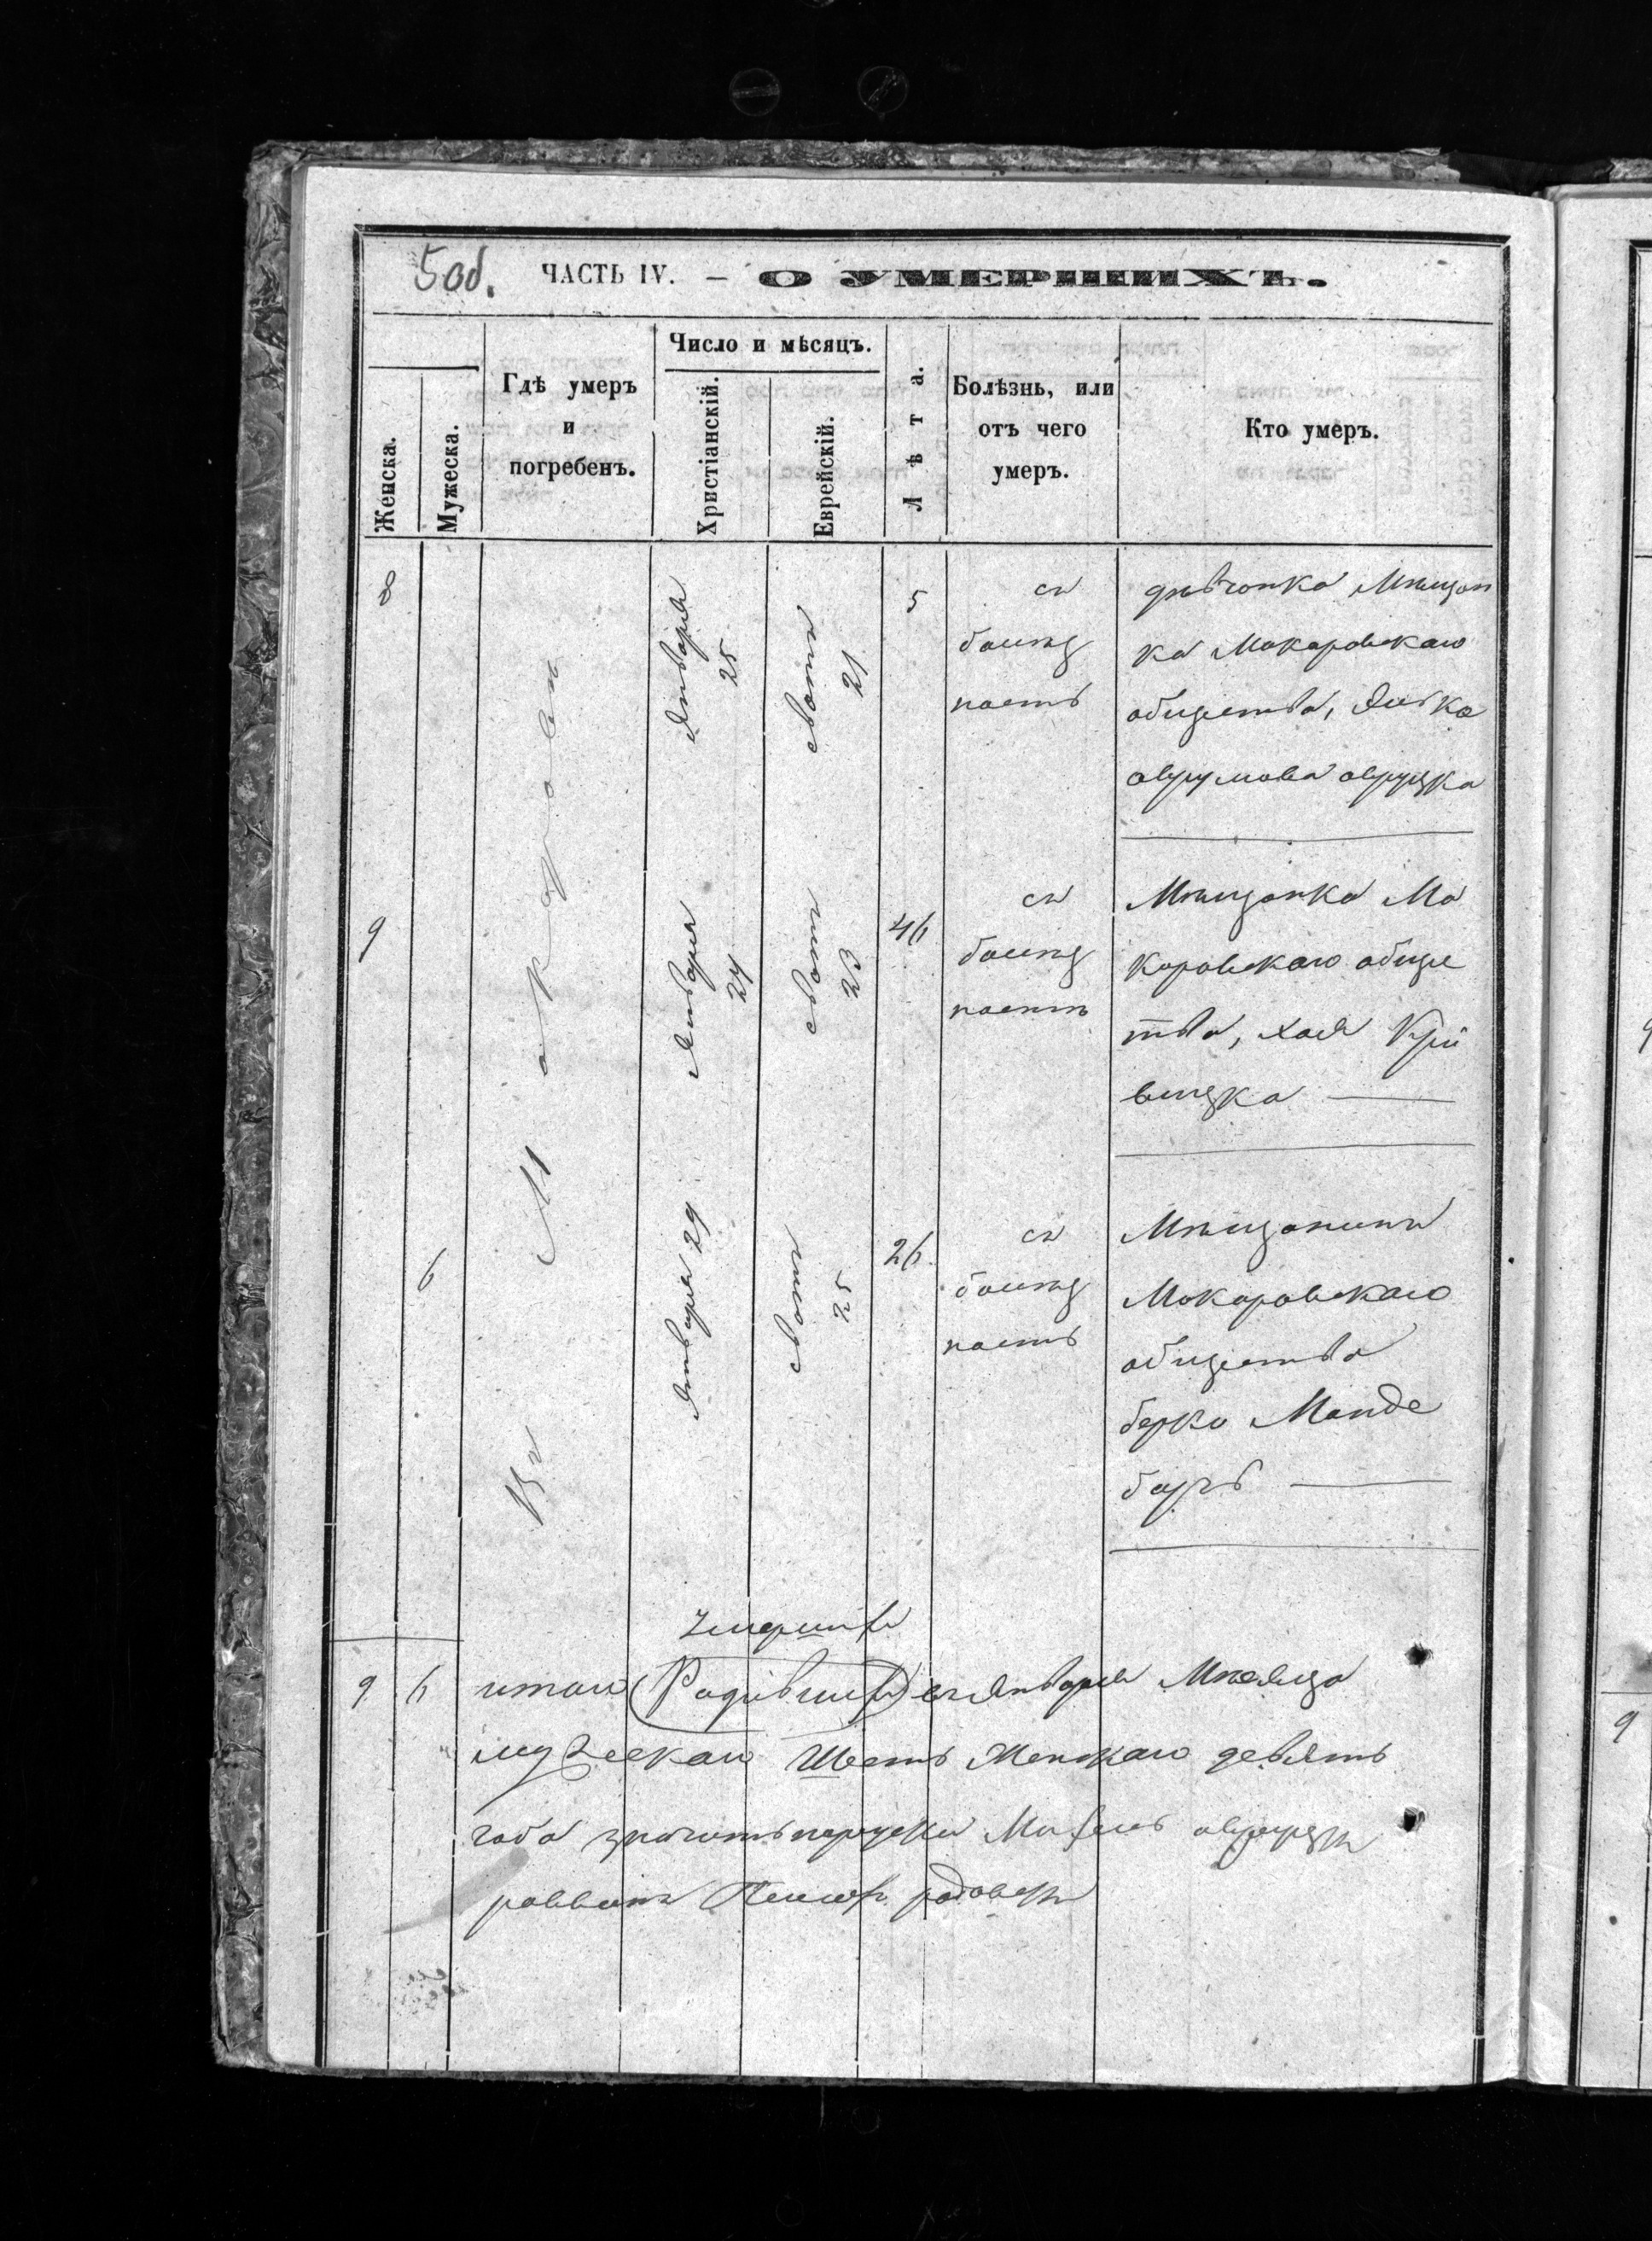 5об. ЧАСТЬ IV. — О УМЕРШИХЪ.
Женска.
Мужеска.
Гдѣ умеръ
и
погребенъ.
Число и мѣсяцъ.
Христіанскій.
Еврейскій.
Лѣта.
Болѣзнь, или
отъ чего
умеръ.
Кто умеръ.
Въ Макаровѣ
8
Января
25
Шватъ
21
5
съ
болѣз
насть
дѣвчонка Мѣщан
ка Макаровскаго
общества,
аврумова овруцка
9
Января
27
Шватъ
23
46
съ
болѣз
насть
Мѣщанка Ма
каровскаго обще
тва, Хая Кри
вицка
6
Января 29
Шватъ
25
26
съ
болѣз
насть
Мѣщанинъ
Макаровскаго
общества
берко Манде
баръ
умершихъ
9 6 итого (Родівшихъ) въ Январѣ Мѣсяца
мужескаго Шесть Женскаго девять
раввинъ